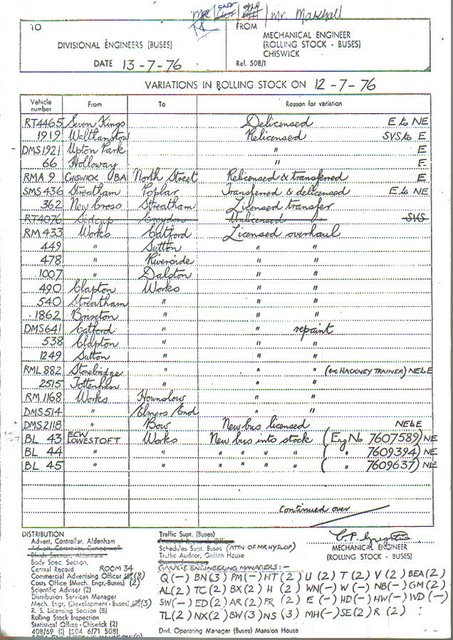 Mr Marshall
TO
FROM
DIVISIONAL ENGINEERS (BUSES)
MECHANICAL ENGINEER
(ROLLING STOCK - BUSES)
CHISWICK
DATE 13-7-76
Ref. 508/1
VARIATIONS IN ROLLING STOCK ON 12-7-76
Vehicle number From To Reason for variation
RT4465 Seven Kings Delicensed E to NE
1919 Walthamstow Relicensed SVS to E
DMS1921 Upton Park " E
66 Holloway " E
RMA 9 CHISWICK BA North Street Relicensed & transferred E
SMS436 Streatham Poplar Transferred & delicensed E to NE
362 New Cross Streatham Licensed transfer
RT4076 Sidcup Croydon Unlicensed SVS
RM433 Works Catford Licensed overhaul
449 " Sutton " "
478 " Riverside " "
1007 " Dalston " "
490 Clapton Works " "
540 Streatham " " "
1862 Brixton " " "
DMS641 Catford " " repaint
538 Clapton " " "
1249 Sutton " " "
RML882 Stonebridge " " " (ex HACKNEY TRAINER) NELE
2515 Tottenham " " "
RM1168 Works Hounslow " "
DMS514 " Elmers End " "
DMS2118 " Bow New bus licensed NELE
BL 43 ECW LOWESTOFT Works New bus into stock (Eng No 7607589) NE
BL 44 " " " " " " ( " " 7609394) NE
BL 45 " " " " " " ( " " 7609637) NE
Continued over
DISTRIBUTION
Advert. Controller, Aldenham
Body Spec. Section,
Central Record ROOM 34
Commercial Advertising Officer
Costs Office (Mech. Engr.-Buses) (2)
Scientific Adviser (2)
Distribution Services Manager
Mech. Engr. (Development-Buses)
R. S. Licensing Section (8)
Rolling Stock Inspection
Statistics Office - Chiswick (2)
408/69 (L) 1504 6/71 50M
Traffic Supt. (Buses)
Schedules Supt. Buses (ATTN OF MR HYSLOP)
Traffic Auditor, Griffith House
GARAGE ENGINEERING MANAGERS:-
Q(-) BN(3) PM(-) HT(2) U(2) T(2) V(2) BEA(2)
AL(2) TC(2) BX(2) H(2) WN(-) W(-) NB(-) GM(2)
SW(-) ED(2) AR(2) PR(2) E(-) HD(-) HW(-) WD(-)
TL(2) NX(2) BW(3) NS(3) MH(-) SE(2) R(2)
Divl. Operating Manager (Buses) Mansion House
MECHANICAL ENGINEER
(ROLLING STOCK - BUSES)